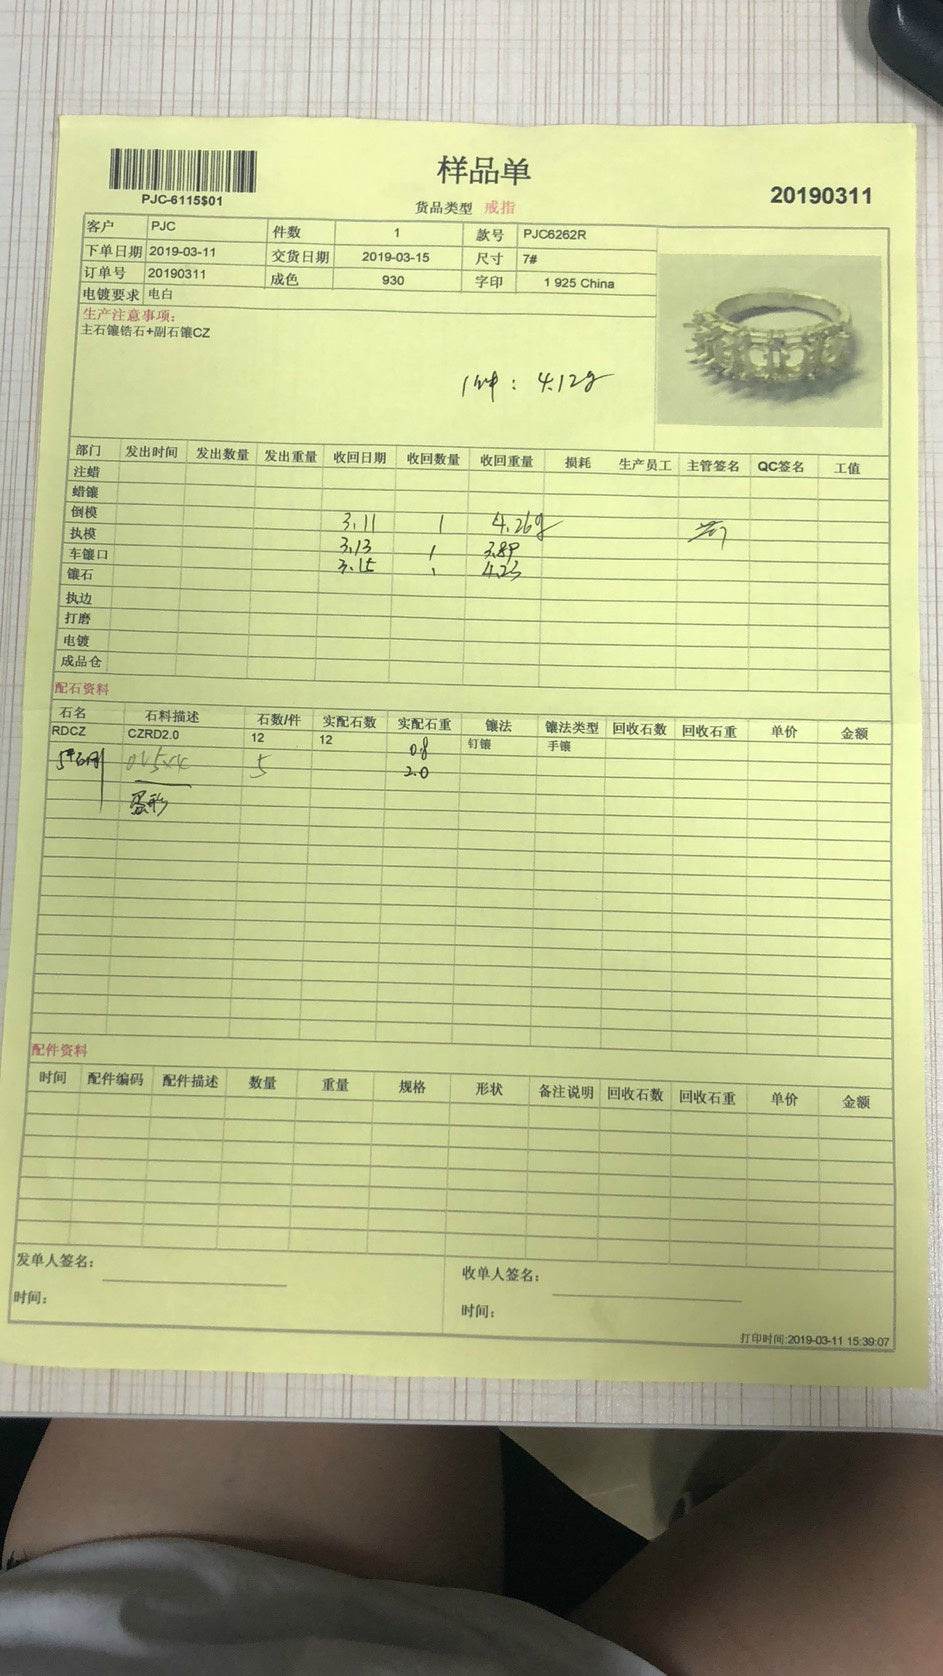 样品单
PJC-6115$01
货品类型 戒指
20190311
客户 PJC 件数 1 款号 PJC6262R
下单日期 2019-03-11 交货日期 2019-03-15 尺寸 7#
订单号 20190311 成色 930 字印 1 925 China
电镀要求 电白
生产注意事项:
主石镶锆石+副石镶CZ
1钟: 4.12g
部门 发出时间 发出数量 发出重量 收回日期 收回数量 收回重量 损耗 生产员工 主管签名 QC签名 工值
注蜡
蜡镶
倒模 3.11 1 4.26g
执模 3.13 1 3.89
车镶口 3.15 1 4.23
镶石
执边
打磨
电镀
成品仓
配石资料
石名 石料描述 石数/件 实配石数 实配石重 镶法 镶法类型 回收石数 回收石重 单价 金额
RDCZ CZRD2.0 12 12 0.8 钉镶 手镶
OV5x4 5 2.0
蛋形
配件资料
时间 配件编码 配件描述 数量 重量 规格 形状 备注说明 回收石数 回收石重 单价 金额
发单人签名:
收单人签名:
时间:
时间:
打印时间:2019-03-11 15:39:07